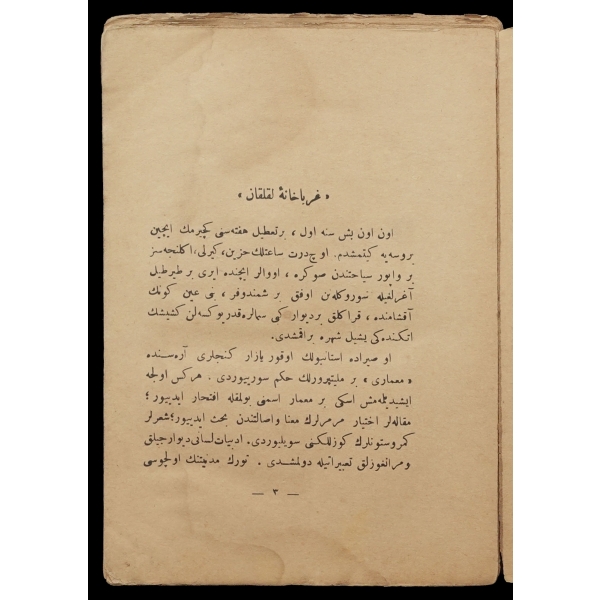 « غرباخانهٔ لقلقان »
اون اون بش سنه اول ، بر تعطيل هفته سنى كچيرمك ايچين
بروسه يه كيتمشدم. اوچ درت ساعتلك حزين، كيرلى، اكلنجه سز
بر واپور سياحتندن صوكره ، اووالر ايچنده ايرى بر طيرطيل
آغرلغيله سوروكله نن اوفق بر شمندوفر ، بنى عين كونك
آقشامنده ، قراكلق بر ديوار كى سمالره قدر يوكسه لن كشيشك
اتكنده كى يشيل شهره براقمشدى.
او صيراده استانبولك اوقور يازار كنجلرى آره سنده
« معمارى » بر مليتپرورلك حكم سورييوردى . هركس اولجه
ايشيديلمه مش اسكى بر معمار اسمنى بولمقله افتخار ايدييور ؛
مقاله لر اختيار مرمرلرك معنا و اصالتندن بحث ايدييور ؛ شعرلر
كمر و ستونلرك كوزللكنى سويليوردى. ادبيات لسانى ديوارجيلق
و مرانغوزلق تعبيراتيله دولمشدى . تورك مدنيتنك اولچوسى
— ٣ —